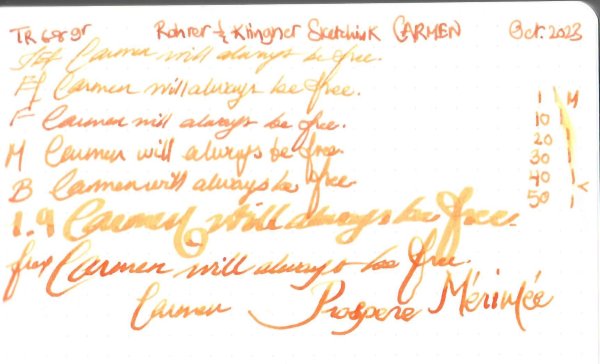 TR 68gr Rohrer & Klingner SketchInk CARMEN Oct. 2023
Carmen will always be free.
EF Carmen will always be free.
F Carmen will always be free.
M Carmen will always be free.
B Carmen will always be free.
1.9 Carmen will always be free.
flex Carmen will always be free.
Carmen Prospere Mérimée
1 M
10
20
30
40
50